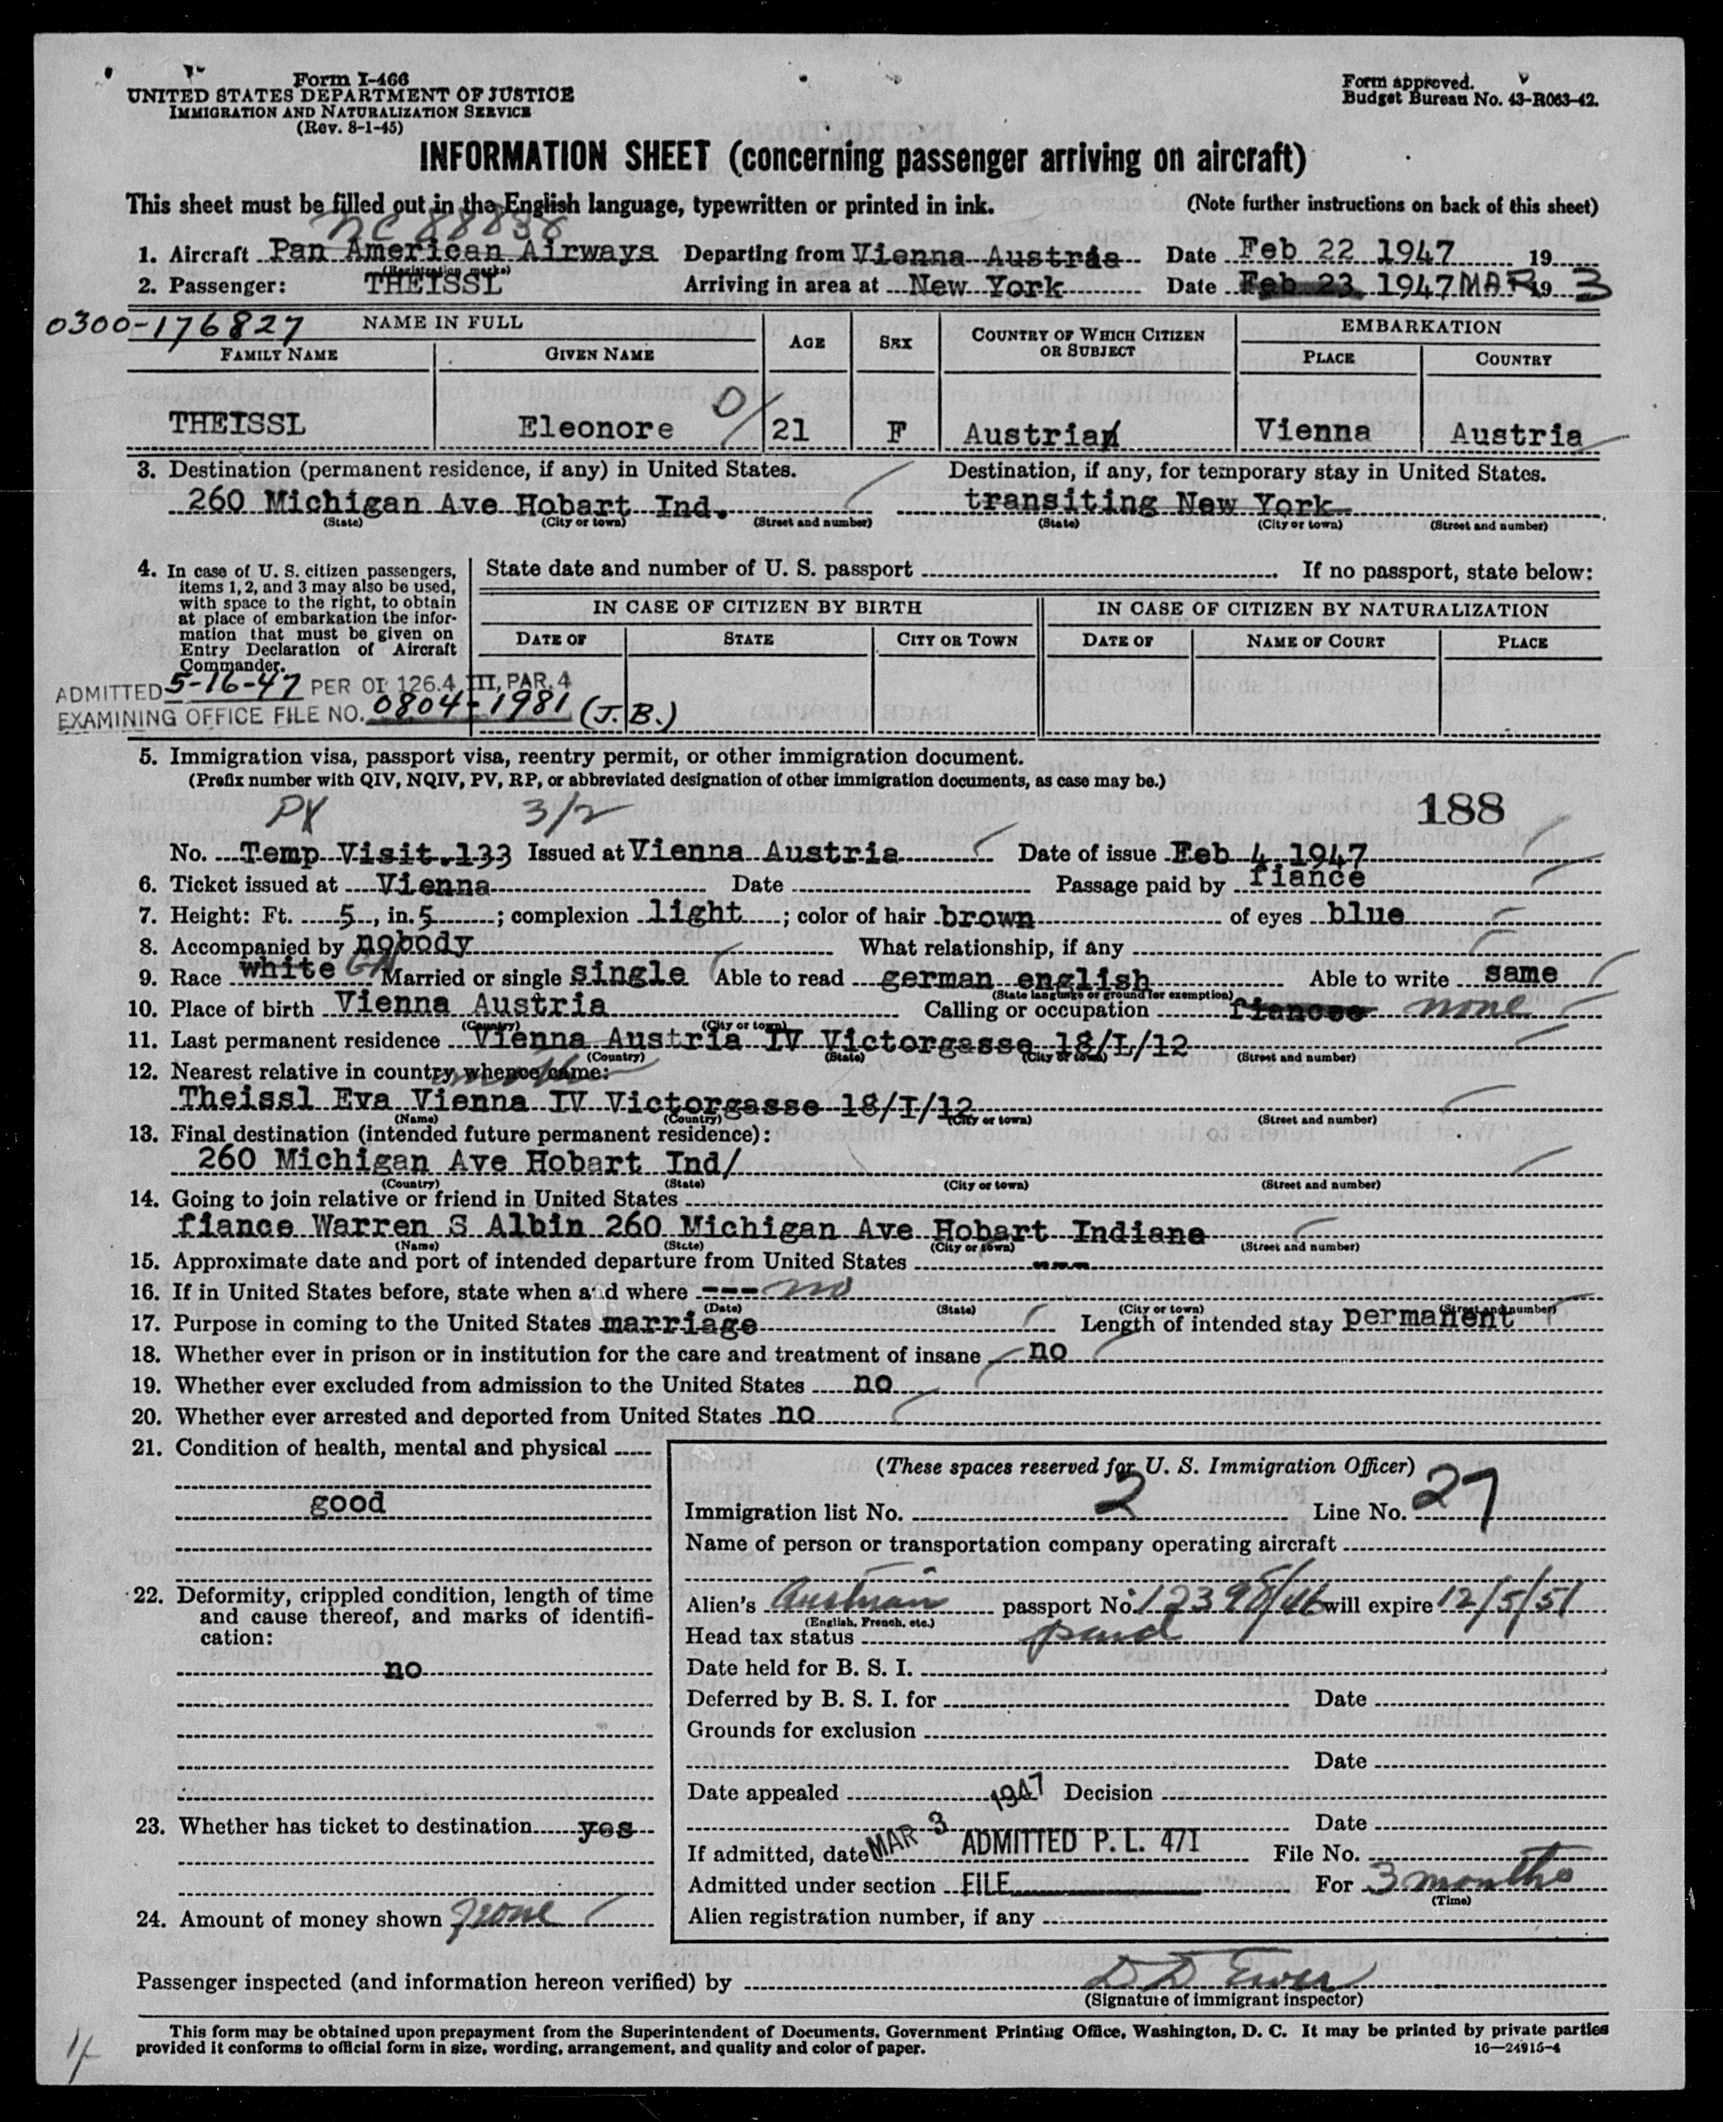 Form I-466
UNITED STATES DEPARTMENT OF JUSTICE
IMMIGRATION AND NATURALIZATION SERVICE
(Rev. 8-1-45)
Form approved.
Budget Bureau No. 43-R063-42.
INFORMATION SHEET (concerning passenger arriving on aircraft)
This sheet must be filled out in the English language, typewritten or printed in ink. (Note further instructions on back of this sheet)
NC 88838
1. Aircraft Pan American Airways Departing from Vienna Austria Date Feb 22 1947 19
(Registration marks)
2. Passenger: THEISSL Arriving in area at New York Date Feb 23 1947 MAR 19 3
0300-176827 NAME IN FULL AGE SEX COUNTRY OF WHICH CITIZEN OR SUBJECT EMBARKATION
FAMILY NAME GIVEN NAME PLACE COUNTRY
THEISSL Eleonore 0/ 21 F Austrian Vienna Austria
3. Destination (permanent residence, if any) in United States. Destination, if any, for temporary stay in United States.
260 Michigan Ave Hobart Ind. transiting New York
(State) (City or town) (Street and number) (State) (City or town) (Street and number)
4. In case of U. S. citizen passengers, items 1, 2, and 3 may also be used, with space to the right, to obtain at place of embarkation the information that must be given on Entry Declaration of Aircraft Commander.
State date and number of U. S. passport If no passport, state below:
IN CASE OF CITIZEN BY BIRTH IN CASE OF CITIZEN BY NATURALIZATION
DATE OF STATE CITY OR TOWN DATE OF NAME OF COURT PLACE
ADMITTED 5-16-47 PER OI 126.4 III, PAR. 4
EXAMINING OFFICE FILE NO. 0804-1981 (J.B.)
5. Immigration visa, passport visa, reentry permit, or other immigration document.
(Prefix number with QIV, NQIV, PV, RP, or abbreviated designation of other immigration documents, as case may be.)
PV 3/2 188
No. Temp Visit.133 Issued at Vienna Austria Date of issue Feb 4 1947
6. Ticket issued at Vienna Date Passage paid by fiance
7. Height: Ft. 5, in. 5; complexion light; color of hair brown of eyes blue
8. Accompanied by nobody What relationship, if any
9. Race white Married or single single Able to read german english Able to write same
(State language or ground for exemption)
10. Place of birth Vienna Austria Calling or occupation fiancee none
(Country) (City or town)
11. Last permanent residence Vienna Austria IV Victorgasse 18/I/12
(Country) (State) (City or town) (Street and number)
12. Nearest relative in country whence came:
mother
Theissl Eva Vienna IV Victorgasse 18/I/12
(Name) (Country) (City or town) (Street and number)
13. Final destination (intended future permanent residence):
260 Michigan Ave Hobart Ind/
(Country) (State) (City or town) (Street and number)
14. Going to join relative or friend in United States
fiance Warren S Albin 260 Michigan Ave Hobart Indiana
(Name) (State) (City or town) (Street and number)
15. Approximate date and port of intended departure from United States ---
16. If in United States before, state when and where --- no
(Date) (State) (City or town) (Street and number)
17. Purpose in coming to the United States marriage Length of intended stay permanent
18. Whether ever in prison or in institution for the care and treatment of insane no
19. Whether ever excluded from admission to the United States no
20. Whether ever arrested and deported from United States no
21. Condition of health, mental and physical
good
22. Deformity, crippled condition, length of time and cause thereof, and marks of identification:
no
23. Whether has ticket to destination yes
24. Amount of money shown none
(These spaces reserved for U. S. Immigration Officer)
Immigration list No. 2 Line No. 27
Name of person or transportation company operating aircraft
Alien's Austrian passport No. 12398/46 will expire 12/5/51
(English, French, etc.)
Head tax status paid
Date held for B. S. I.
Deferred by B. S. I. for Date
Grounds for exclusion
Date
Date appealed Decision
Date
If admitted, date MAR 3 1947 ADMITTED P. L. 471 File No.
Admitted under section FILE For 3 months
(Time)
Alien registration number, if any
Passenger inspected (and information hereon verified) by D D
(Signature of immigrant inspector)
This form may be obtained upon prepayment from the Superintendent of Documents, Government Printing Office, Washington, D. C. It may be printed by private parties
provided it conforms to official form in size, wording, arrangement, and quality and color of paper. 16—24915-4